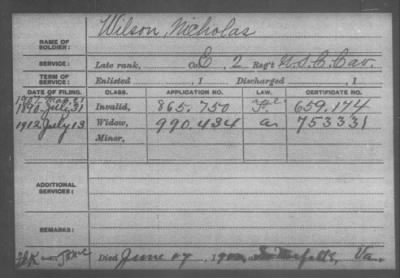 Wilson, Nicholas
NAME OF SOLDIER:
SERVICE: Late rank, Co. E, 2 Reg't U.S.C. Cav.
TERM OF SERVICE: Enlisted , 1 Discharged , 1
DATE OF FILING. CLASS. APPLICATION NO. LAW. CERTIFICATE NO.
1890 July 31 Invalid, 865.750 659.174
1912 July 13 Widow, 990.434 753331
Minor,
ADDITIONAL SERVICES:
REMARKS:
Died June 17, Va.